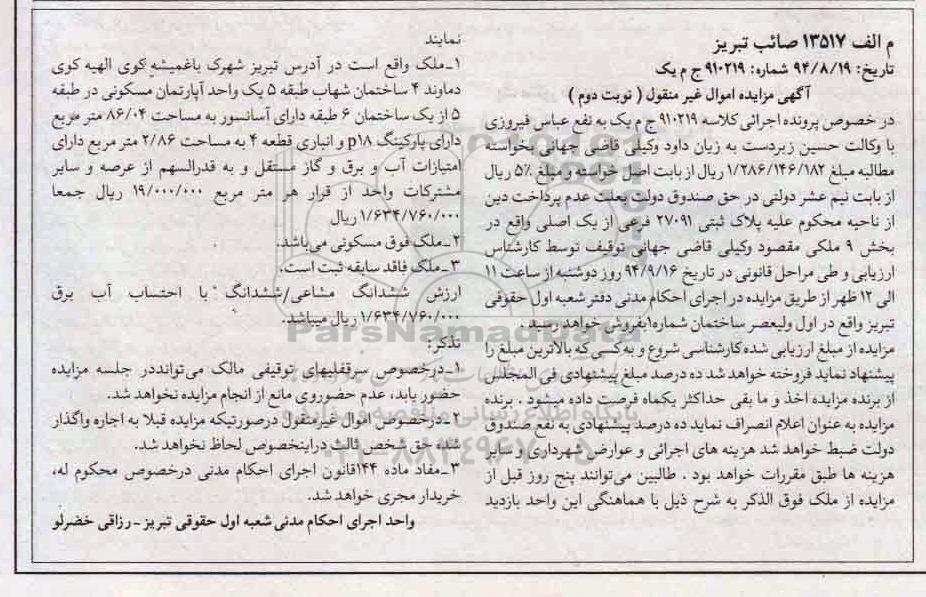 م الف ۱۳۵۱۷ صائب تبریز
تاریخ: ۹۴/۸/۱۹ شماره: ۹۱۰۲۱۹ ج م یک
آگهی مزایده اموال غیر منقول ( نوبت دوم )
در خصوص پرونده اجرائی کلاسه ۹۱۰۲۱۹ ج م یک به نفع عباس فیروزی
با وکالت حسین زبردست به زیان داود وکیلی قاضی جهانی بخواسته
مطالبه مبلغ ۱/۲۸۶/۱۴۶/۱۸۲ ریال از بابت اصل خواسته و مبلغ ۵٪ ریال
از بابت نیم عشر دولتی در حق صندوق دولت بعلت عدم پرداخت دین
از ناحیه محکوم علیه پلاک ثبتی ۲۷۰۹۱ فرعی از یک اصلی واقع در
بخش ۹ ملکی مقصود وکیلی قاضی جهانی توقیف توسط کارشناس
ارزیابی و طی مراحل قانونی در تاریخ ۹۴/۹/۱۶ روز دوشنبه از ساعت ۱۱
الی ۱۲ ظهر از طریق مزایده در اجرای احکام مدنی دفتر شعبه اول حقوقی
تبریز واقع در اول ولیعصر ساختمان شماره۱بفروش خواهد رسید .
مزایده از مبلغ ارزیابی شده کارشناسی شروع و به کسی که بالاترین مبلغ را
پیشنهاد نماید فروخته خواهد شد ده درصد مبلغ پیشنهادی فی المجلس
از برنده مزایده اخذ و ما بقی حداکثر یکماه فرصت داده میشود . برنده
مزایده به عنوان اعلام انصراف نماید ده درصد پیشنهادی به نفع صندوق
دولت ضبط خواهد شد هزینه های اجرائی و عوارض شهرداری و سایر
هزینه ها طبق مقررات خواهد بود . طالبین می‌توانند پنج روز قبل از
مزایده از ملک فوق الذکر به شرح ذیل با هماهنگی این واحد بازدید
نمایند
۱ـملک واقع است در آدرس تبریز شهرک باغمیشه کوی الهیه کوی
دماوند ۴ ساختمان شهاب طبقه ۵ یک واحد آپارتمان مسکونی در طبقه
۵ از یک ساختمان ۶ طبقه دارای آسانسور به مساحت ۸۶/۰۴ متر مربع
دارای پارکینگ p۱۸ و انباری قطعه ۴ به مساحت ۲/۸۶ متر مربع دارای
امتیازات آب و برق و گاز مستقل و به قدرالسهم از عرصه و سایر
مشترکات واحد از قرار هر متر مربع ۱۹/۰۰۰/۰۰۰ ریال جمعا
۱/۶۳۴/۷۶۰/۰۰۰ ریال
۲ـملک فوق مسکونی می‌باشد.
۳ـملک فاقد سابقه ثبت است.
ارزش ششدانگ مشاعی/ششدانگ با احتساب آب برق
۱/۶۳۴/۷۶۰/۰۰۰ ریال میباشد.
تذکر:
۱ـدرخصوص سرقفلیهای توقیفی مالک می‌توانددر جلسه مزایده
حضور یابد، عدم حضوروی مانع از انجام مزایده نخواهد شد.
۲ـدرخصوص اموال غیرمنقول درصورتیکه مزایده قبلا به اجاره واگذار
شده حق شخص ثالث دراینخصوص لحاظ نخواهد شد.
۳ـمفاد ماده ۱۴۴قانون اجرای احکام مدنی درخصوص محکوم له،
خریدار مجری خواهد شد.
واحد اجرای احکام مدنی شعبه اول حقوقی تبریز ـ رزاقی خضرلو
ParsNamadData
پایگاه اطلاع رسانی مناقصه و مزایده
۰۲۱-۸۸۳۴۹۶۷۰-۵